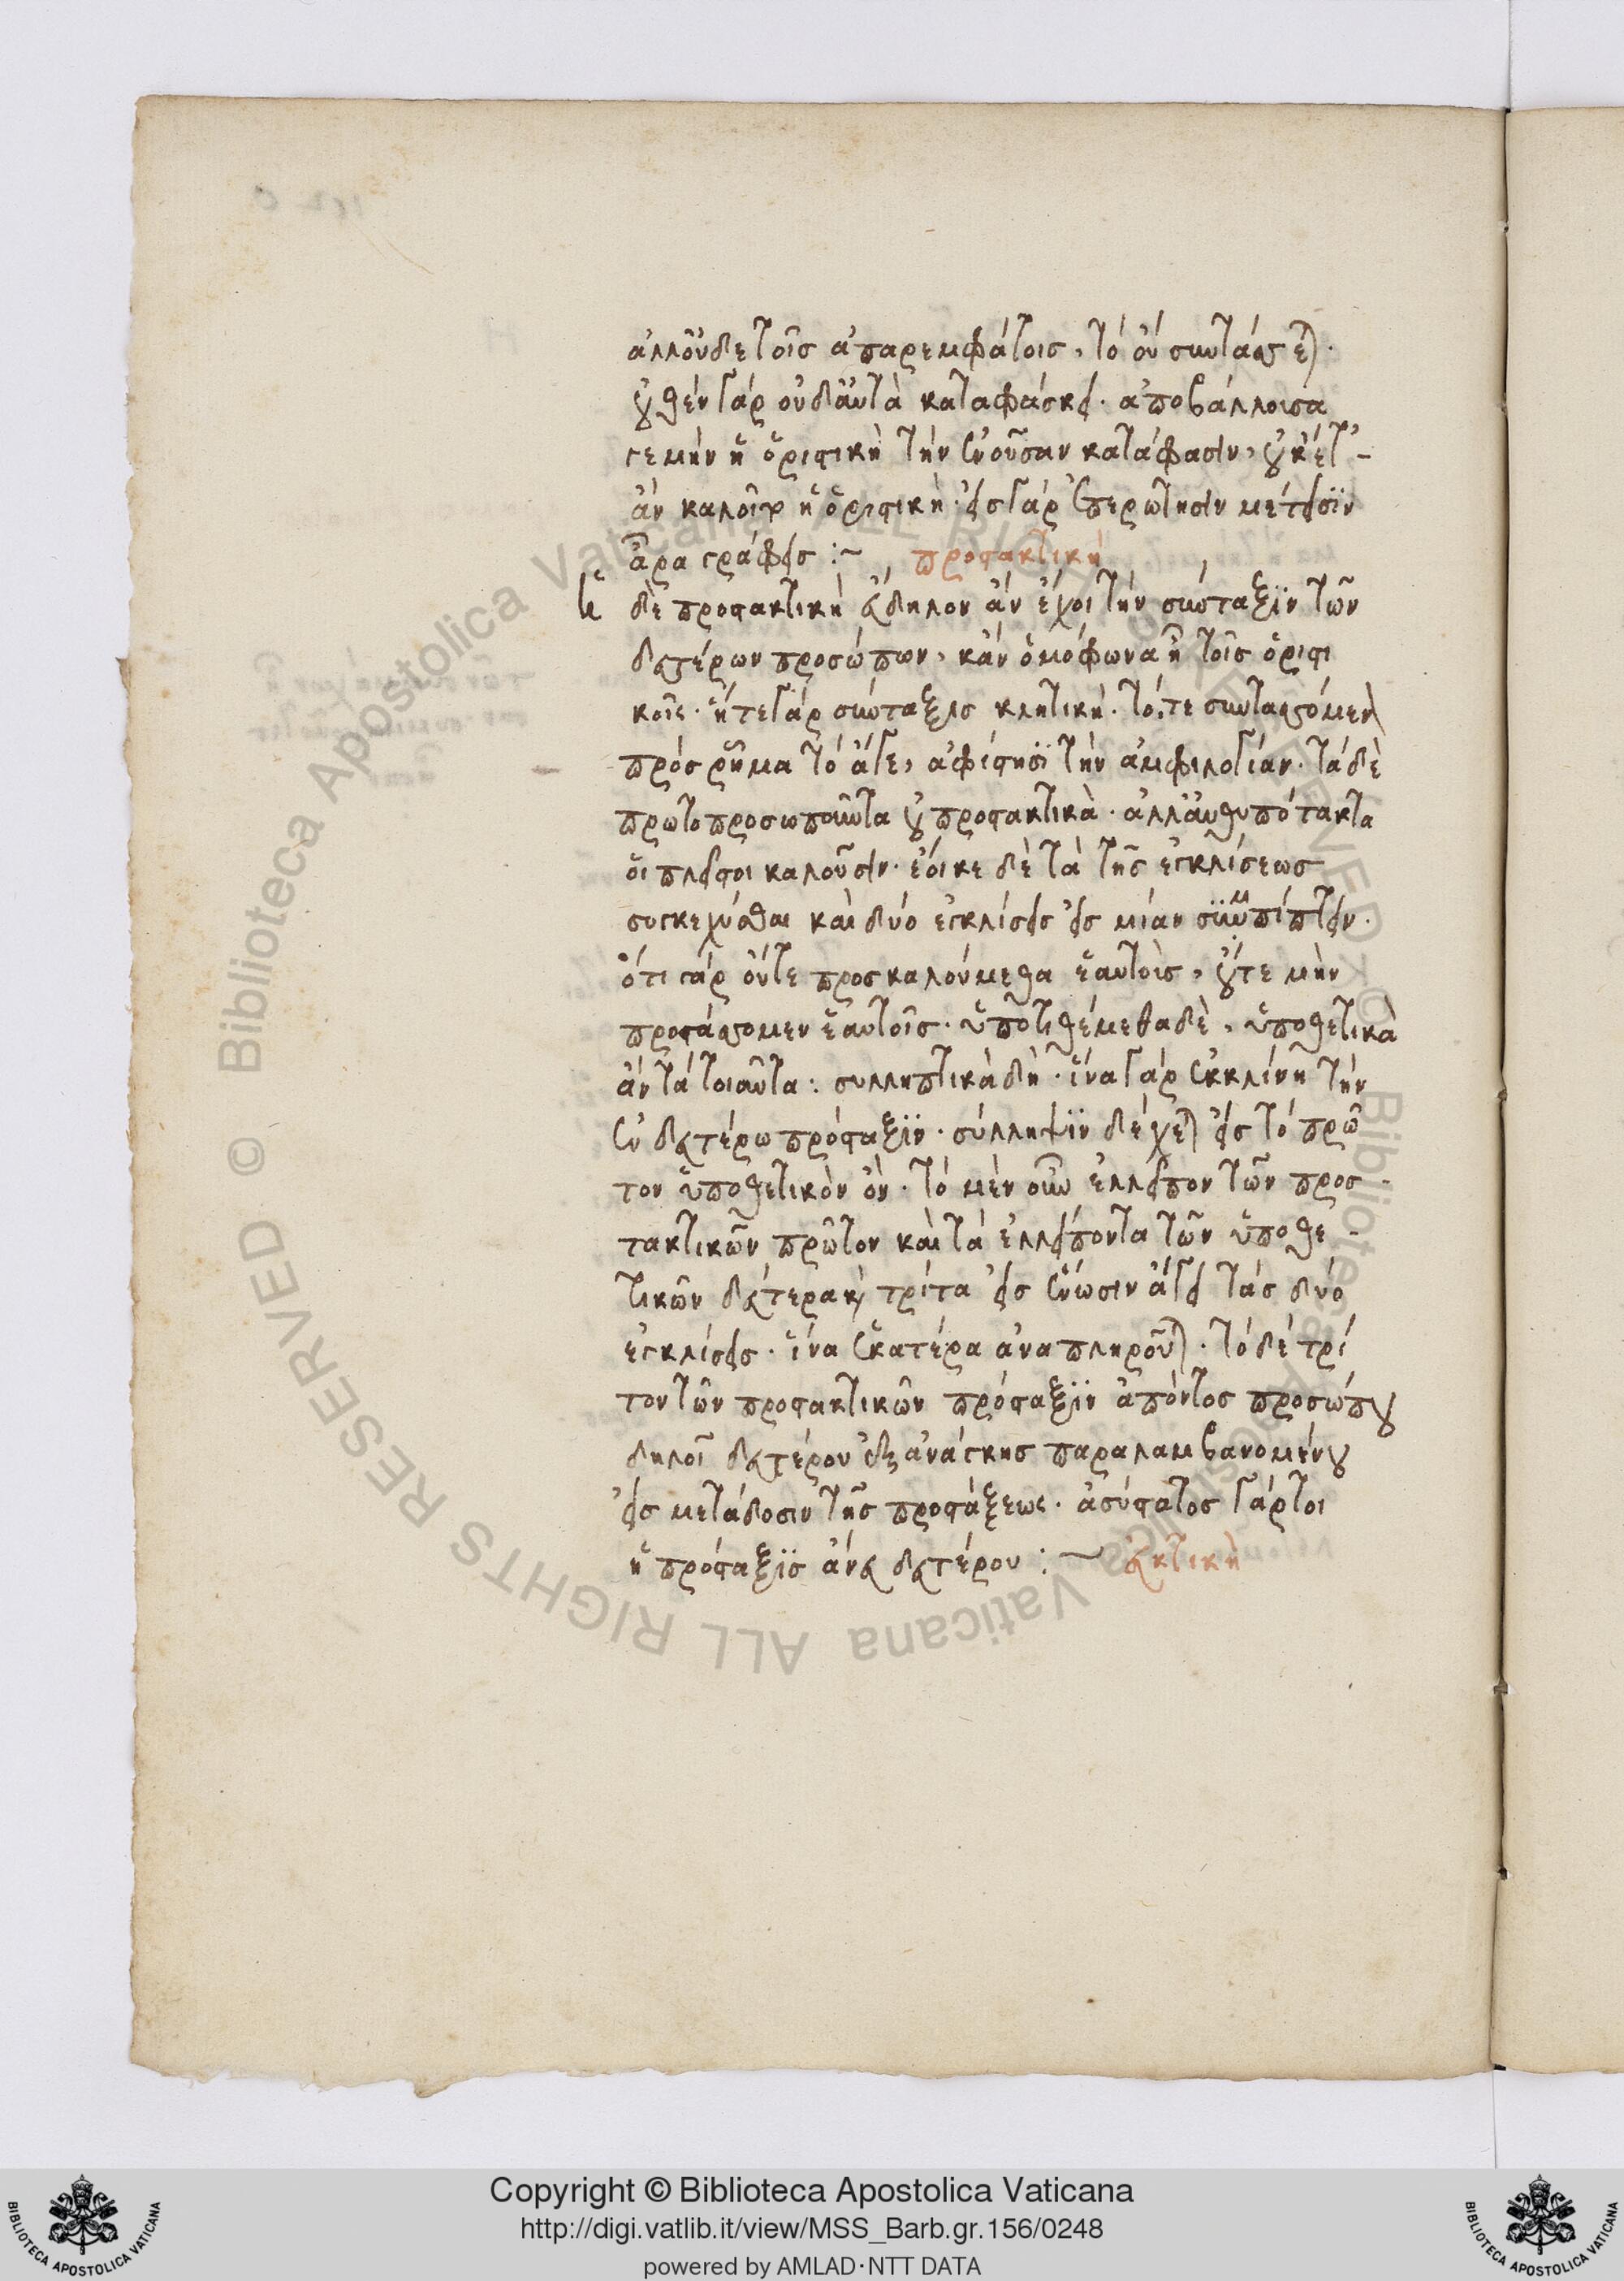 ἀλλ' οὐδὲ τοῖς ἀπαρεμφάτοις, τὸ οὐ συντάσσεται.
οὐθὲν γάρ οὐδ' αὐτὰ καταφάσκει. ἀποβάλλουσα
γε μὴν ἡ ὁριστικὴ τὴν ἐνοῦσαν κατάφασιν, οὐκέτ'
ἂν καλοῖτο ἡ ὁριστικὴ. εἰς γάρ ἐπερώτησιν μέτεισιν
ἆρα γράφεις :~ προστακτικὴ
ἡ δὲ προστακτικὴ εὔδηλον ἂν ἔχοι τὴν σύνταξιν τῶν
δευτέρων προσώπων, κἂν ὁμόφωνα ᾖ τοῖς ὁριστι
κοῖς. ἥτε γάρ σύνταξις κλητικὴ. τό, τε συντασσόμενον
πρός ῥῆμα τὸ ἄγε, ἀφίστησι τὴν ἀμφιλογίαν. τὰ δὲ
πρωτοπρόσωπα αὐτὰ οὐ προστακτικὰ. ἀλλ' ἀνθυπότακτα
οἱ πλεῖστοι καλοῦσιν. ἔοικε δὲ τὰ τῆς ἐγκλίσεως
συγκεχύσθαι καὶ δύο ἐγκλίσεις εἰς μίαν συμπίπτειν.
ὅτι γάρ οὔτε προσκαλούμεθα ἑαυτοὺς, οὔτε μὴν
προστάσσομεν ἑαυτοῖς. ὑποτιθέμεθα δὲ, ὑποθετικὰ
ἂν τὰ τοιαῦτα : συλληπτικὰ δὴ. ἵνα γάρ ἐκκλίνῃ τὴν
ἐν δευτέρῳ πρόσταξιν. σύλληψιν δέχεται εἰς τὸ πρῶ
τον ὑποθετικὸν ὂν. τὸ μὲν οὖν ἐλλεῖπον τῶν προσ-
τακτικῶν πρῶτον καὶ τὰ ἐλλείποντα τῶν ὑποθε-
τικῶν δεύτερα καὶ τρίτα εἰς ἕνωσιν ἄγει τὰς δύο
ἐγκλίσεις. ἵνα ἑκατέρα ἀναπληροῦται. τὸ δέ τρί
τον τῶν προστακτικῶν πρόσταξιν ἀπόντος προσώπου
δηλοῖ δευτέρου ἐξ ἀνάγκης παραλαμβανομένου
εἰς μετάδοσιν τῆς προστάξεως. ἀσύστατος γάρ τοι
ἡ πρόσταξις ἄνευ δευτέρου :~ εὐκτικὴ
Copyright © Biblioteca Apostolica Vaticana
http://digi.vatlib.it/view/MSS_Barb.gr.156/0248
powered by AMLAD·NTT DATA